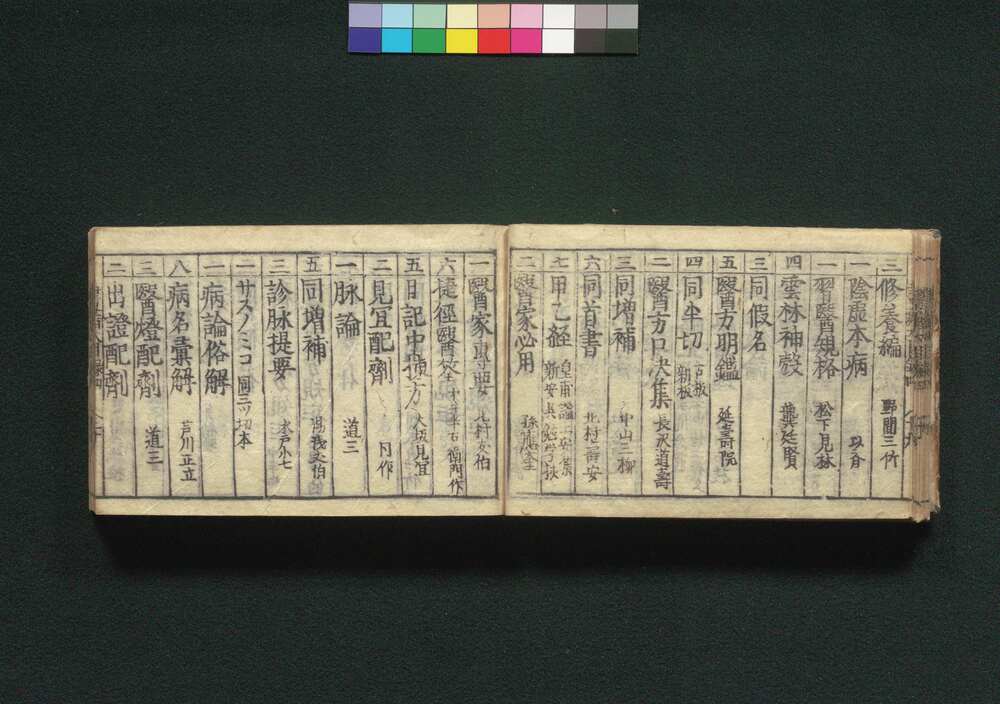 三 修養編 野間三竹
一 陰虚本病
一 習醫規格 松下見林
四 雲林神彀 龔廷賢
三 同假名
五 醫方明鑑 延壽院
四 同半切 古板 新板
二 醫方口訣集 長沢道壽
三 同増補 中山三柳
六 同首書 北村壽安
七 甲乙経 皇甫謐
二 醫家必用 孫應奎
一 醫家
六 捷徑醫
五 日記中揀方 大坂見宜
二 見宜配劑 同作
一 脉論 道三
五 同増補
三 診脉提要
一 サスノミコ 同三ツ切本
一 病論俗解
八 病名彙解 芦川正立
三 醫燈配劑 道三
二 出證配劑